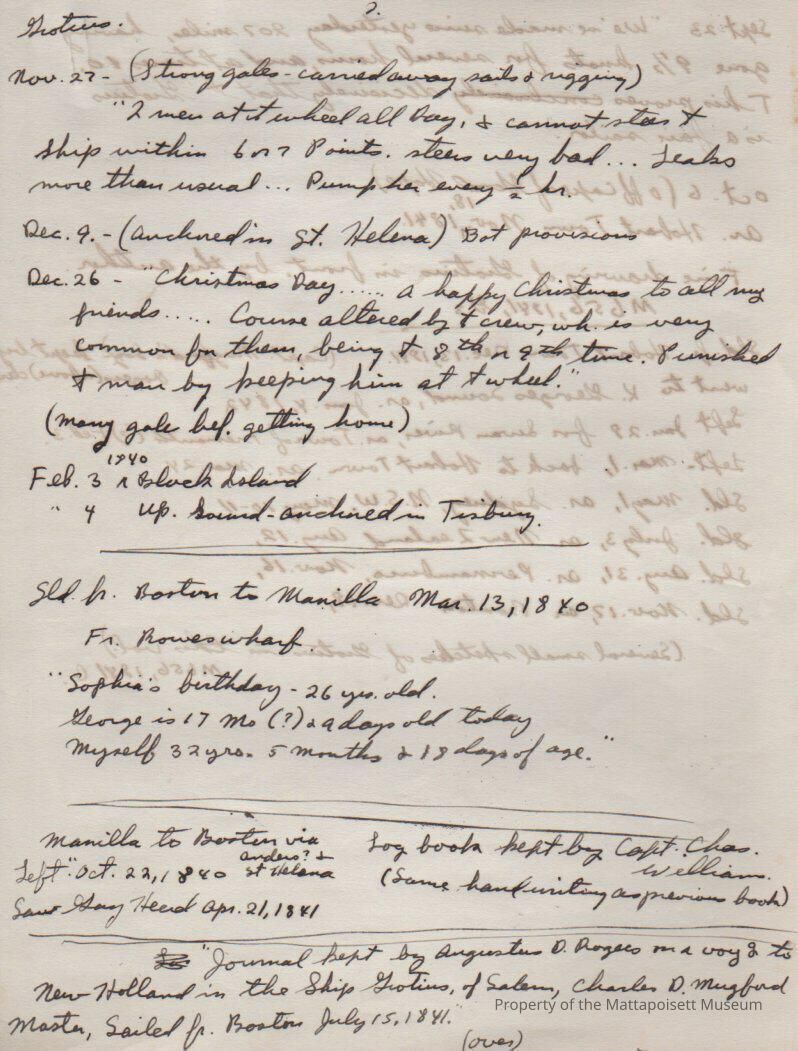 2.
Grotius.
Nov. 27 - (Strong gales - carried away sails & rigging)
"2 men at t wheel all Day, & cannot steer t
Ship within 6 or 7 Points. steers very bad... Leaks
more than usual... Pump her every ½ hr.
Dec. 9. - (anchored in St. Helena) Bot provisions
Dec. 26 - "Christmas Day...... a happy Christmas to all my
friends..... Course altered by t crew, wh. is very
common for them, being t 8th or 9th time. Punished
t man by keeping him at t wheel."
(Many gale bef. getting home)
1840
Feb. 3 ^ Block Island
" 4 Up. Sound - anchored in Tisbury.
Sld. fr. Boston to Manilla Mar. 13, 1840
Fr. Rowes wharf.
"Sophia's birthday - 26 yrs. old.
George is 17 mo (?) & 9 days old today
Myself 32 yrs. 5 months & 18 days of age."
Manilla to Boston via
anders? &
Left" Oct. 22, 1840 St Helena
Saw Gay Head Apr. 21, 1841
Log book kept by Capt. Chas.
Williams.
(Same handwriting as previous book)
"Journal kept by Augustus D. Rogers on a voyg to
New Holland in the Ship Grotius, of Salem, Charles D. Mugford
Master, Sailed fr. Boston July 15, 1841.
(over)
Property of the Mattapoisett Museum